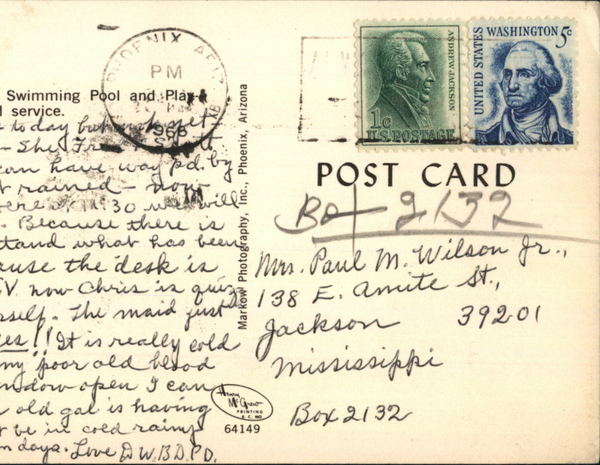 Swimming Pool and Play-
l service.
PHOENIX ARIZ
PM
1968
to day but not yet
- She
can have way pd. by
t rained - now
ere 11:30 will
. Because there is
stand what has been
ause the desk is
TV now Chris is quiz
self. The maid just
es!! It is really cold
my poor old blood
ndow open I can
old gal is having
t be in cold rainy
n days. Love D.W.B.D.P.D.
Markow Photography, Inc., Phoenix, Arizona
ANDREW JACKSON
1c
U.S. POSTAGE
UNITED STATES
WASHINGTON 5c
POST CARD
Box 2132
Mrs. Paul M. Wilson Jr.,
138 E. Amite St.,
Jackson 39201
Mississippi
Box 2132
Henry McGrew
PRINTING
K.C. MO
64149